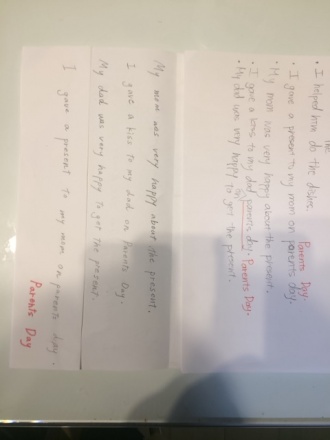 • I helped him do the dishes.
Parents Day.
• I gave a present to my mom on parents day.
• My mom was very happy about the present.
• I gave a kiss to my dad parents day. Parents Day.
• My dad was very happy to get the present.
My mom was very happy about the present.
I gave a kiss to my dad on Parents Day.
My dad was very happy to get the present.
I gave a present to my mom on parents day.
Parents Day